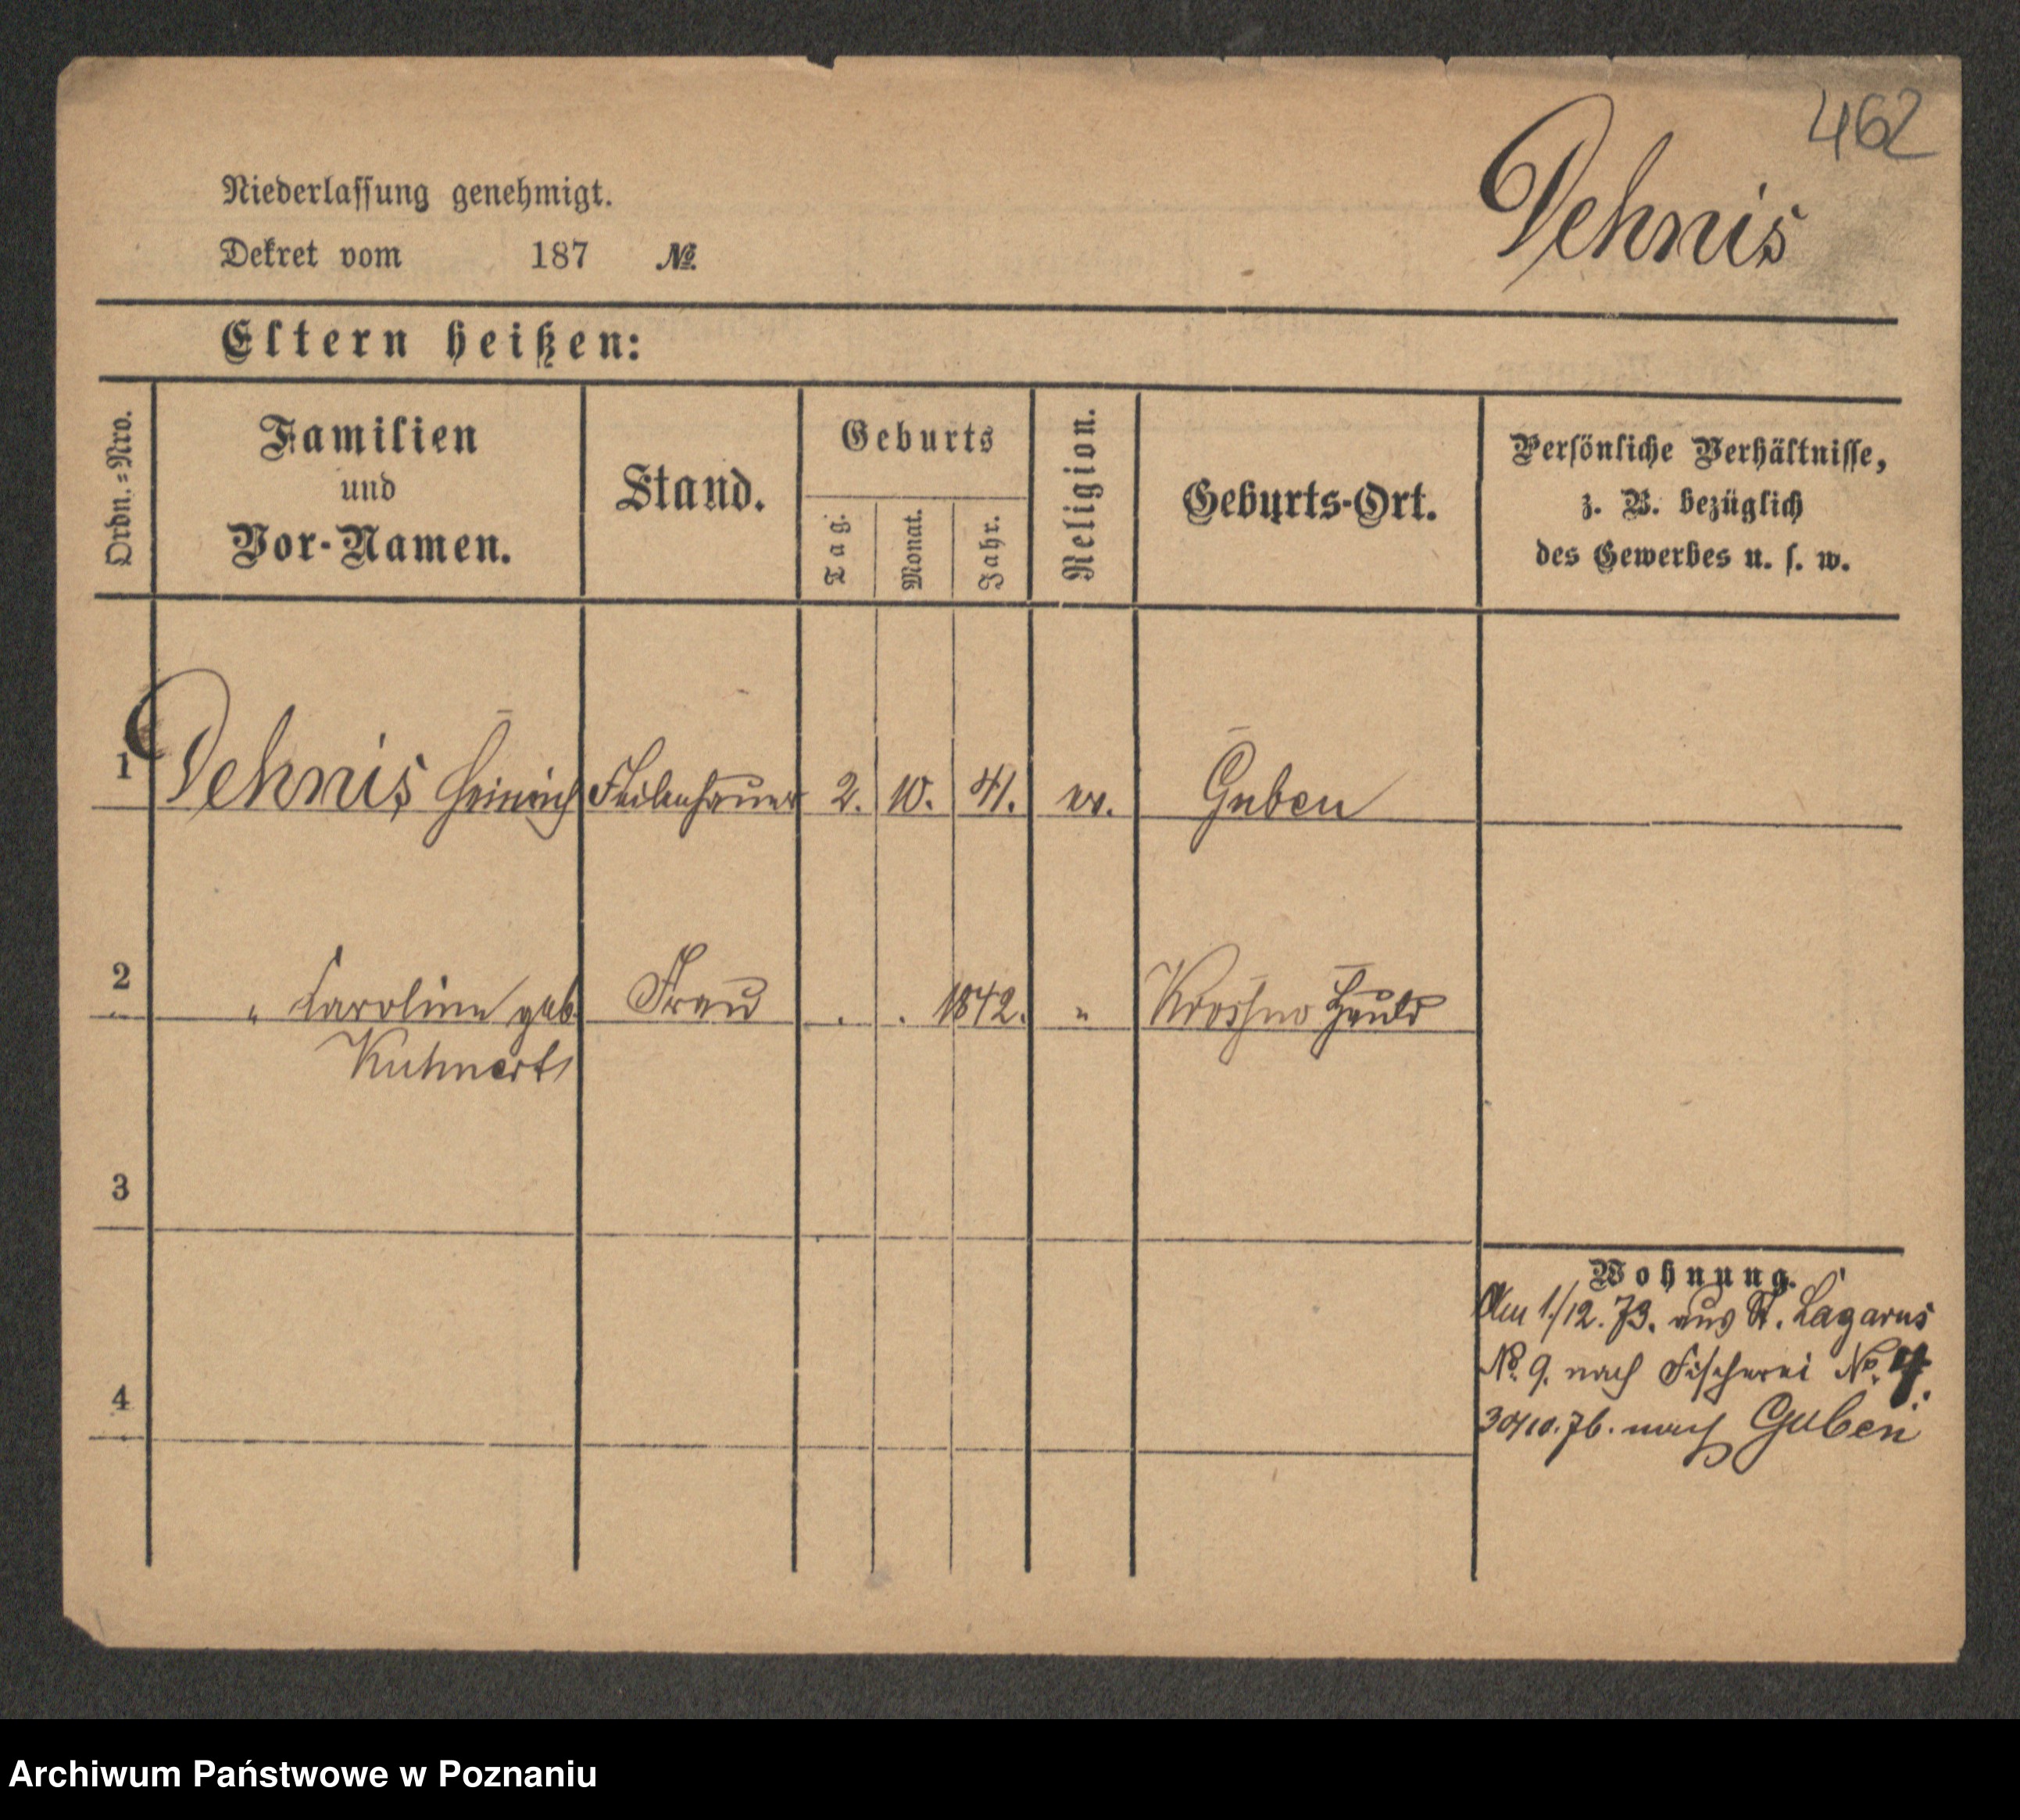 462
Dehnis
Niederlassung genehmigt.
Dekret vom 187 №
Eltern heißen:
Ordn.=Nro.
Familien
und
Vor-Namen.
Stand.
Geburts
Tag.
Monat.
Jahr.
Religion.
Geburts-Ort.
Persönliche Verhältnisse,
z. B. bezüglich
des Gewerbes u. s. w.
1 Dehnis Heinrich Feilenhauer 2. 10. 41. ev. Guben
2 " Caroline geb. Frau . . 1842. " Krossno Hauld
Kuhnert
3
4
Wohnung.
Am 1./12. 73. aus St. Lazarus
No. 9. nach Fischerei No. 4.
30/10. 76. nach Guben
Archiwum Państwowe w Poznaniu